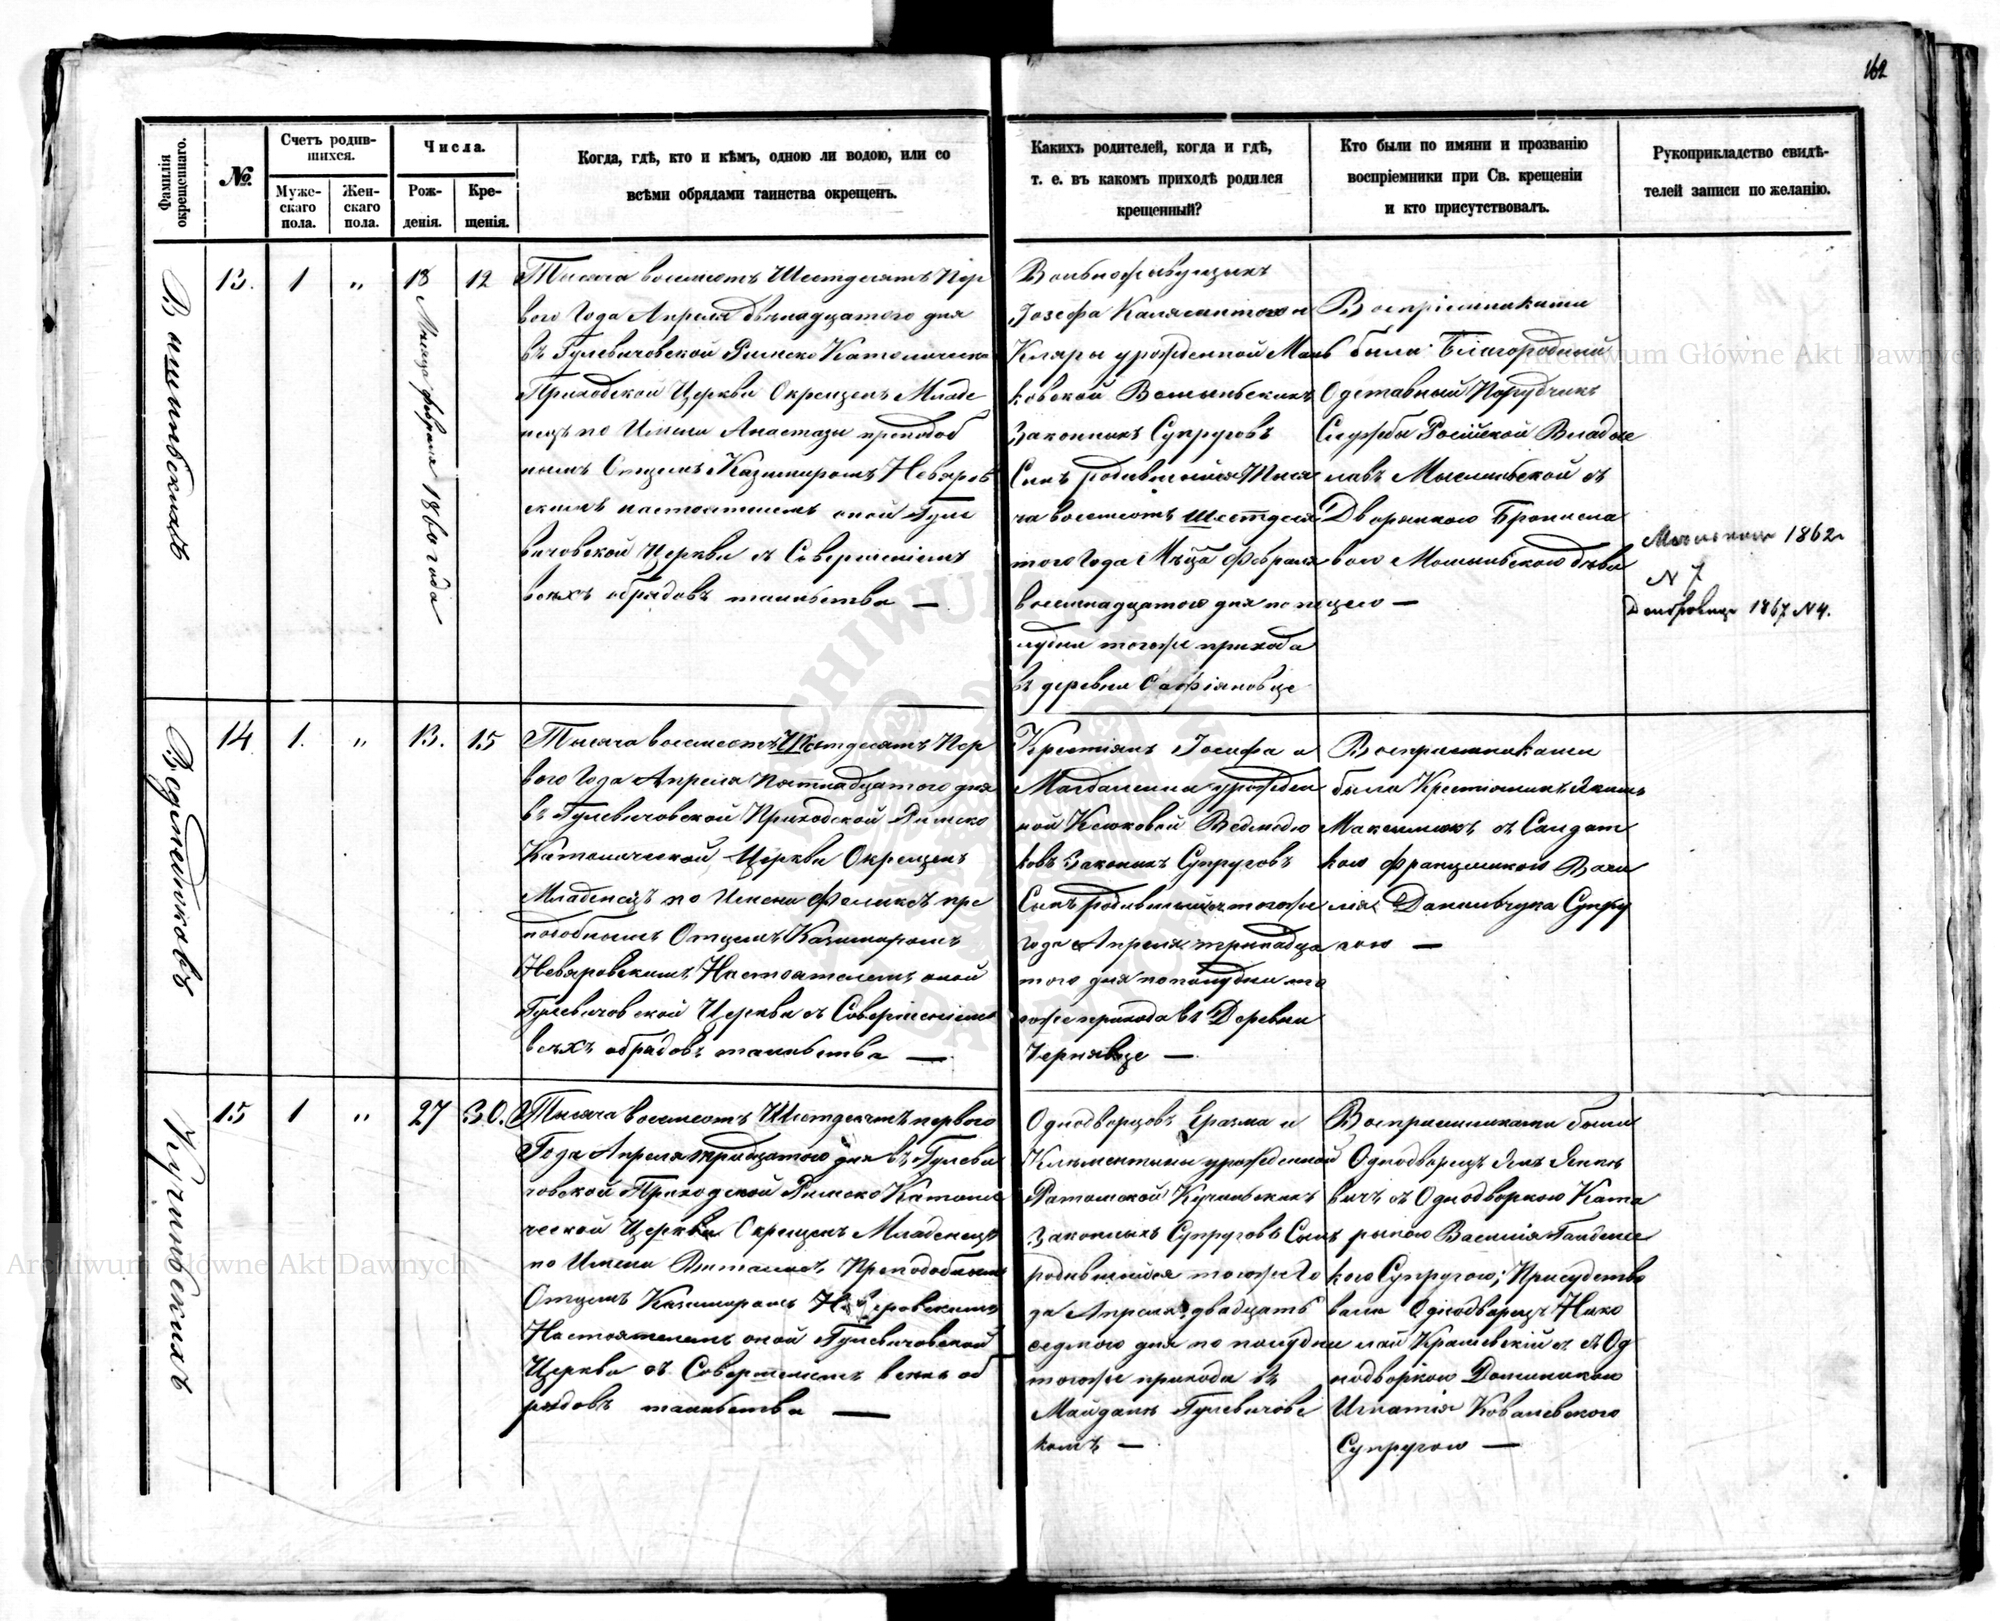 162
Фамилія окрещеннаго.
№.
Счетъ родив-
шихся.
Муже-
скаго
пола.
Жен-
скаго
пола.
Числа.
Рож-
денія.
Кре-
щенія.
Когда, гдѣ, кто и кѣмъ, одною ли водою, или со
всѣми обрядами таинства окрещенъ.
Какихъ родителей, когда и гдѣ,
т. е. въ какомъ приходѣ родился
крещенный?
Кто были по имяни и прозванію
воспріемники при Св. крещеніи
и кто присутствовалъ.
Рукоприкладство свидѣ-
телей записи по желанію.
13.
1
"
18
Мѣсяца февраля 1860 года
12
Тысяча восемсотъ Шестдесятъ Пер
вого Года Апреля двенадцатого дня
въ Гулевичовской Римско Католическо
Приходской Церкви Окрещенъ Младе
нецъ по Имени Анастазы преподоб
нымъ Отцемъ Казимиромъ Невяров
скимъ настоятелемъ оной Гуле
вичовской Церкви съ Совершеніемъ
всехъ обрядовъ таинства —
Вольноживущихъ
Іозефа Калясантого и
Клары урожденной Мань
ковской
Законныхъ Супруговъ
Сынъ родившийся Тися
ча восемсотъ Шестдеся
того Года Мѣца Февраля
восемнадцатого дня по по
лудни тогоже прихода
въ деревни Софіяновце
Воспріемниками
были Благородный
Одставный Порудчикъ
Службы Російской Владис
лавъ Мыслинской съ
Дворянкою Бронисла
вою
цею —
1862
N 7
1867 N 4.
Ведмедюковъ
14
1.
"
13.
15
Тысяча восемсотъ Шестдесятъ Пер
вого Года Апреля Пятнадцатого дня
въ Гулевичовской Приходской Римско
Католической Церкви Окрещенъ
Младенецъ по Имени Феликсъ пре
подобнымъ Отцемъ Казимиромъ
Невяровскимъ Настоятелемъ оной
Гулевичовской Церкви съ Совершеніемъ
всехъ обрядовъ таинства —
Крестіянъ Іосифа и
Магдалини урожден
ной Ведмедю
ковъ Законныхъ Супруговъ
Сынъ родившийся тогоже
года Апреля тринадца
того дня по полудни то
гоже прихода въ Деревни
Чернявце —
Воспріемниками
были Крестянинъ Якимъ
Максимюкъ съ Салдат
кою Францишкою Васи
лія Данильчука Супру
гою —
Кучинскихъ
15
1
"
27
30.
Тысяча восемсотъ Шестдесятъ первого
Года Апреля тридцатого дня въ Гулеви
човской Приходской Римско Католи
ческой Церкви Окрещенъ Младенецъ
по Имени Виталисъ Преподобнымъ
Отцемъ Казимиромъ Невяровскимъ
Настоятелемъ оной Гулевичовской
Церкви съ Совершеніемъ всехъ об
рядовъ таинства —
Однодворцовъ Еразма и
Клементины урожденной
Ратомской Кучинскихъ
Законныхъ Супруговъ Сынъ
родившийся тогоже Го
да Апреля двадцать
седмого дня по полудни
тогоже прихода въ
Майдане Гулевичовс
комъ —
Воспріемниками были
Однодворецъ Янъ Янке
вичъ съ Однодворкою Ката
рыною Василія
кого Супругою; Присудство
вали Однодворецъ Нико
лай Крашевскій съ Од
нодворкою Доминикою
Игнатія Ковалевского
Супругою —
Archiwum Główne Akt Dawnych
Archiwum Główne Akt Dawnych